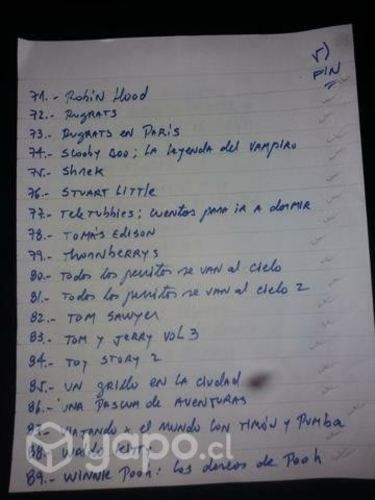 5)
FIN
71.- Robin Hood
72.- Rugrats
73.- Rugrats en Paris
74.- Scooby Doo; La leyenda del vampiro
75.- Shrek
76.- Stuart Little
77.- Teletubbies; cuentos para ir a dormir
78.- Tomás Edison
79.- Thornberrys
80.- Todos los perritos se van al cielo
81.- Todos los perritos se van al cielo 2
82.- Tom Sawyer
83.- Tom y Jerry Vol 3
84.- Toy Story 2
85.- Un grillo en la ciudad
86.- Una Pascua de aventuras
87.- el mundo con Timón y Pumba
88.-
89.- Winnie Pooh: los deseos de Pooh
yapo.cl